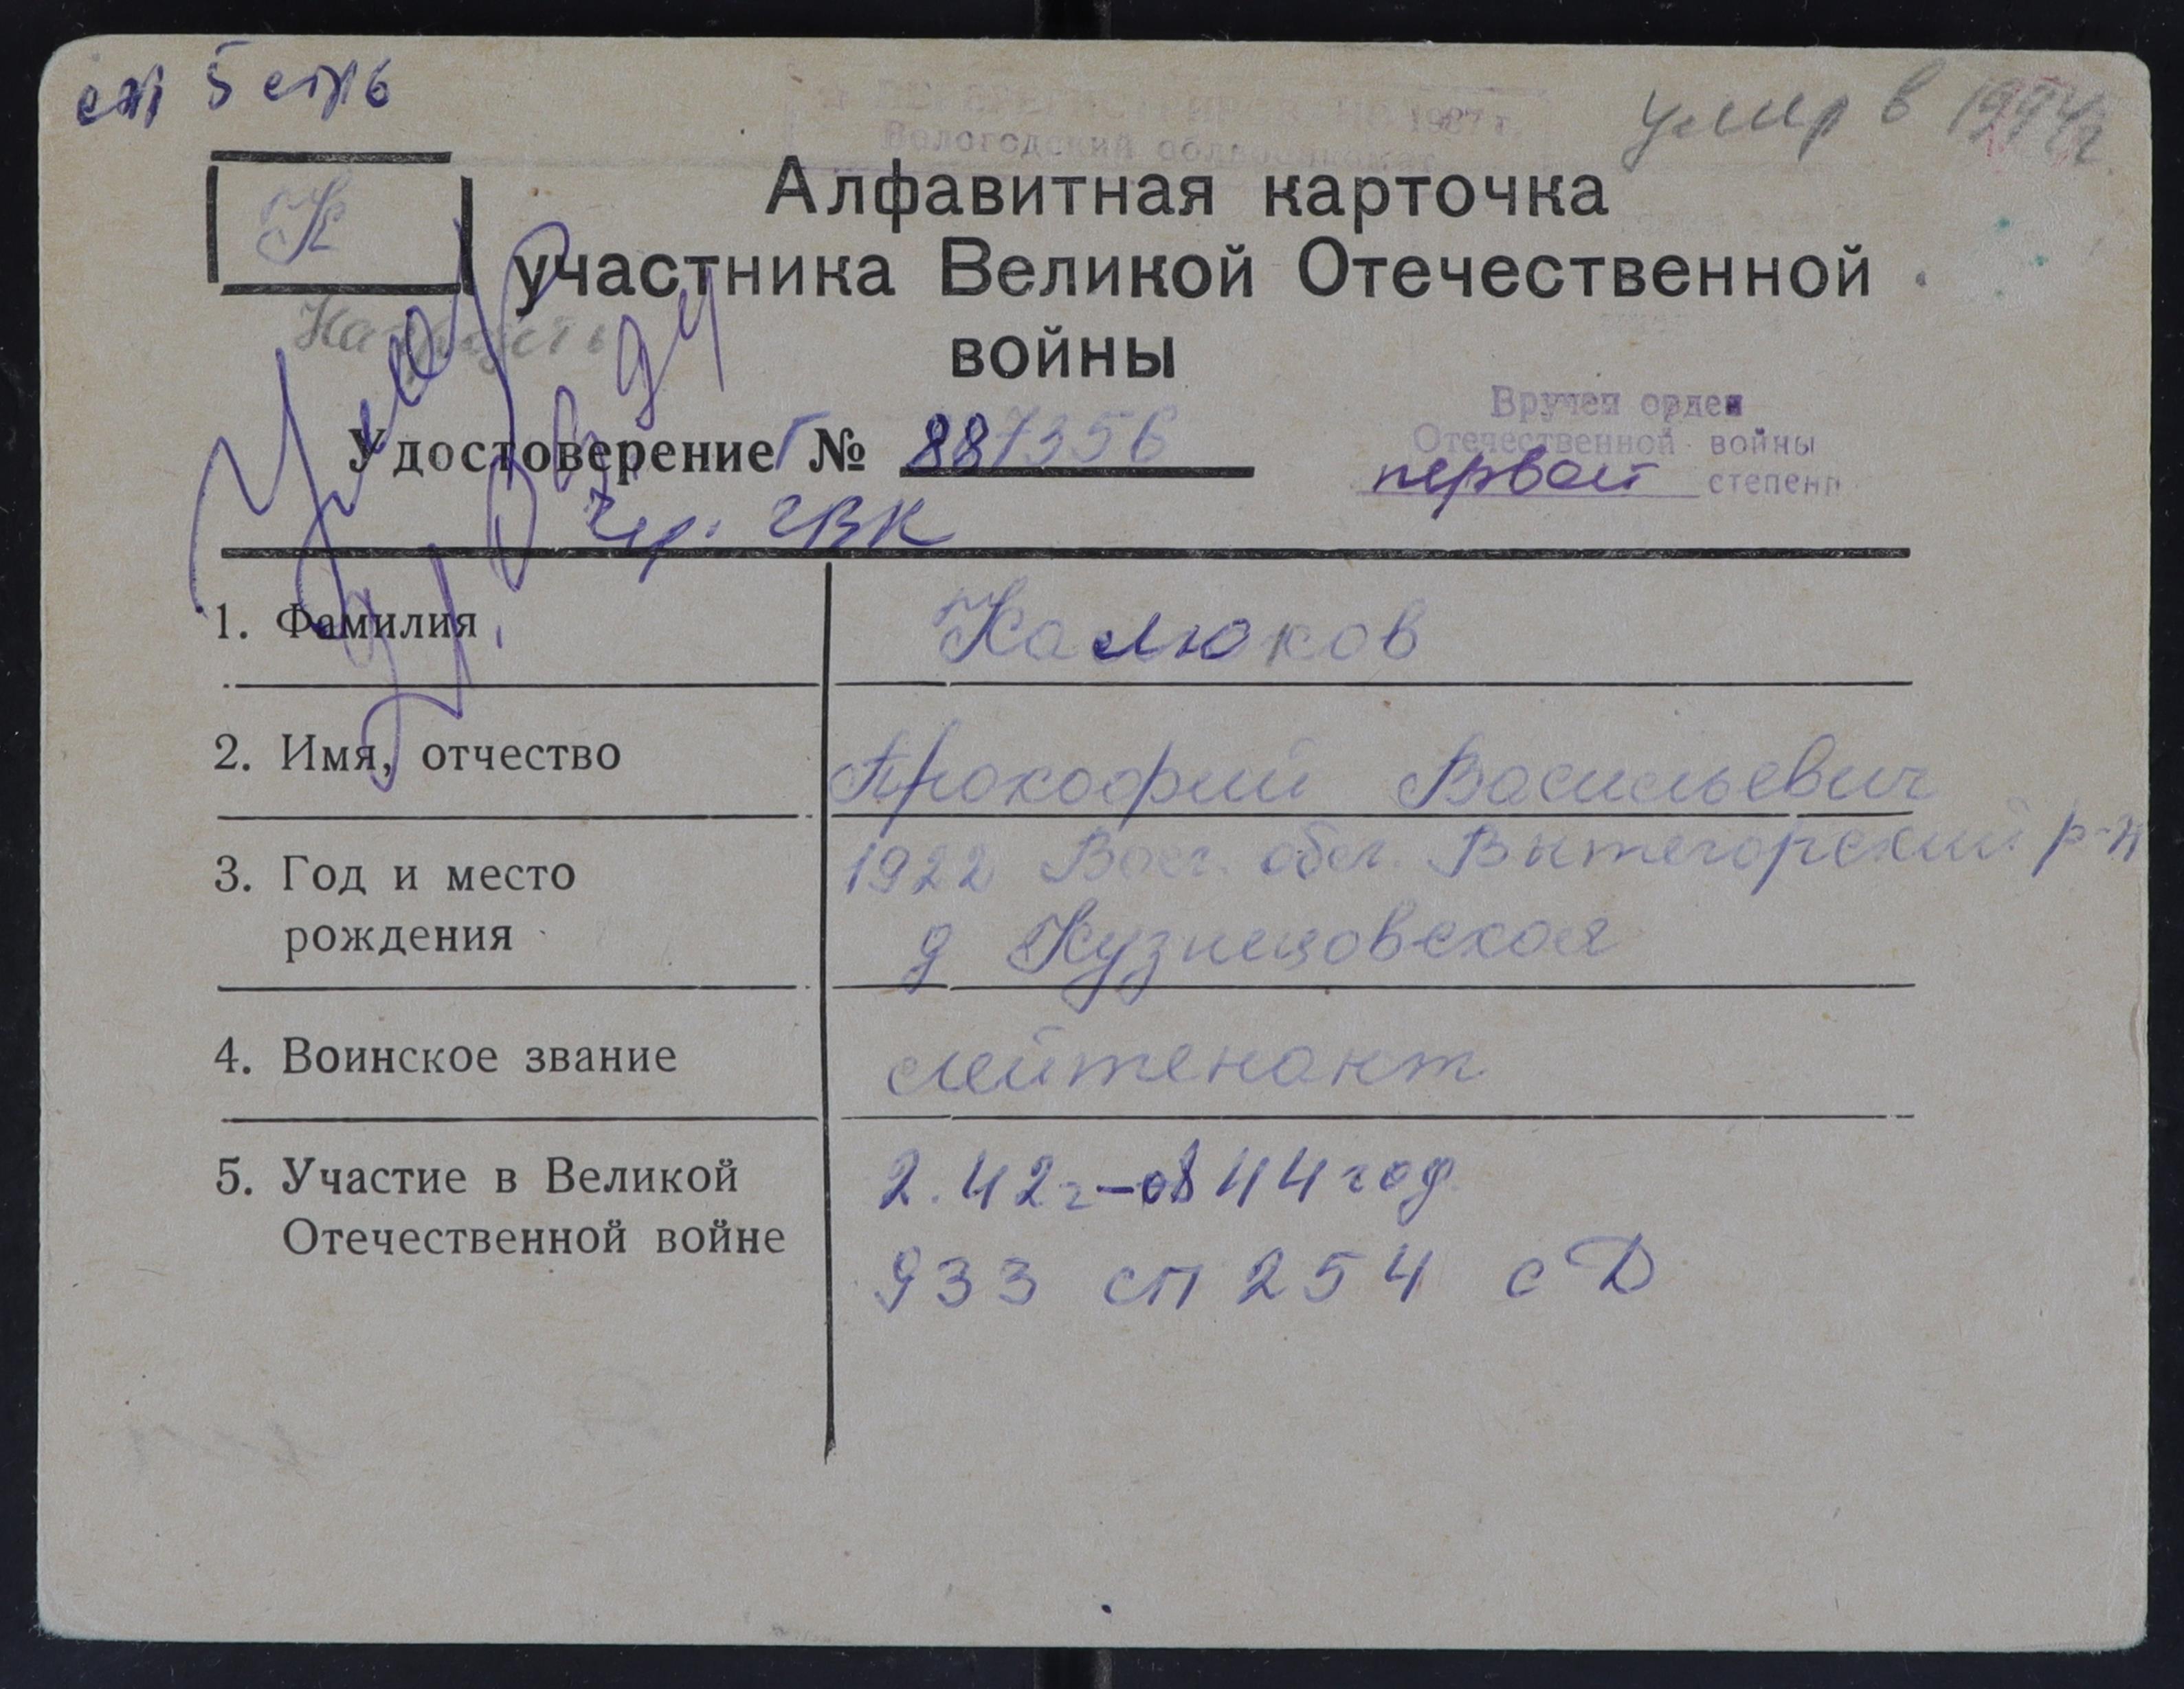 5
умер в 1994г.
К
Вологодский
1987 г.
Алфавитная карточка
участника Великой Отечественной
войны
Умер
Удостоверение Г № 887356
Чер. ГВК
Вручен орден
Отечественной войны
первой степени
1. Фамилия Калюков
2. Имя, отчество Прокофий Васильевич
3. Год и место 1922 Вол. обл. Вытегорский р-н
рождения д Кузнецовская
4. Воинское звание лейтенант
5. Участие в Великой 2.42г-08 44 год
Отечественной войне 933 сп 254 сД